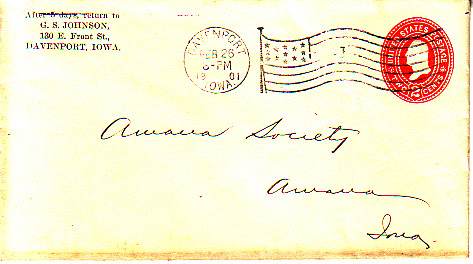 After 5 days, return to
G. S. JOHNSON,
130 E. Front St.,
DAVENPORT, IOWA.
DAVENPORT
FEB 26
3-PM
19 01
IOWA.
3
UNITED STATES POSTAGE
2 CENTS 2
Amana Society
Amana
Iowa